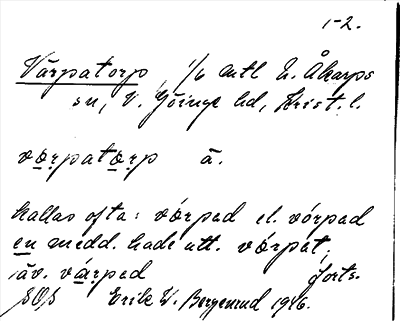 1-2.
Vårpatorp, 1/6 mtl N. Åkarps
sn, V. Göinge hd, Krist. l.
vo̱rpato̱rp ā.
kallas ofta: vórpad el. vórpad
en medd. hade utt. vórpat,
äv. vá̱rpad forts.
SOS Erik W. Bergenrud 1916.